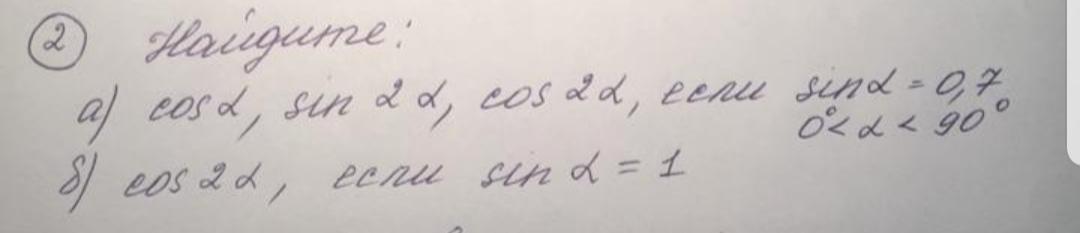 ② Найдите:
а) cos α, sin 2α, cos 2α, если sin α = 0,7
0° < α < 90°
б) cos 2α, если sin α = 1